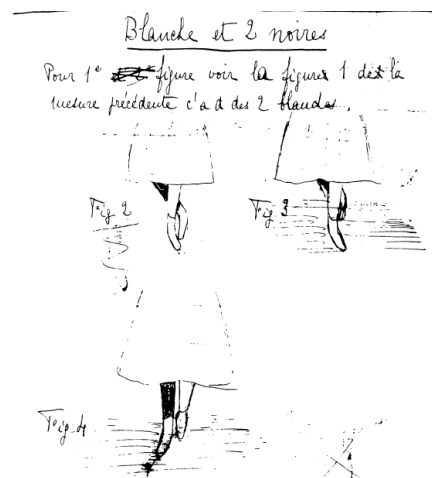 Blanche et 2 noires
Pour 1e figure voir la figure 1 de la
mesure précédente c'a d des 2 blanches.
Fig 2
Fig 3
Fig 4